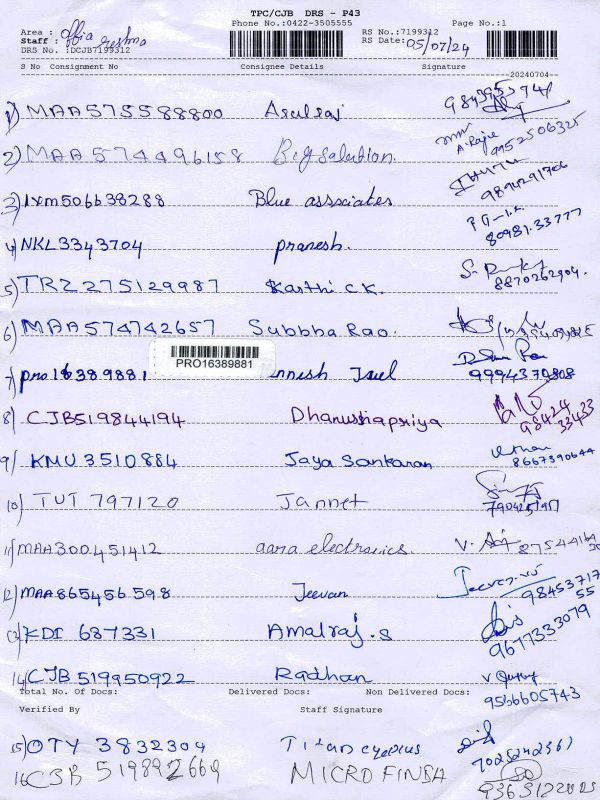 TPC/CJB DRS - P43
Phone No.:0422-3505555 Page No.:1
Area :
Staff :
RS No.:7199312
RS Date: 05/07/24
DRS No. :DCJB7199312
S No Consignment No Consignee Details Signature
20240704
1) MAA575588800 Asulraj
2) MAA574496158 Big Solution. A. Rajie 9952506325
3) IXM506638288 Blue associates 9894291766
4) NKL3343704 pranesh. 80981.33777
5) TRZ275129987 Karthi C.K. 8870262904.
6) MAA574742657 Subbba Rao.
PRO16389881
7) pro16389881 nnish Jaul 9994370808
8) CJB519844194 Dhanushapriya 98424 33433
9) KMU 3510884 Jaya Sankaran 8667390644
10) TUT 797120 Jannet 7904251917
11) MAA300451412 aara electronics.
12) MAA865456598 Jeevan 98453717 55
13) KDI 687331 Amalraj.S 9677333079
14) CJB 519950922 Radhan 9566605743
Total No. Of Docs: Delivered Docs: Non Delivered Docs:
Verified By Staff Signature
15) OTY 3832304 Titan eyeplus 7025242361
16) CJB 519892669 MICRO FINSA